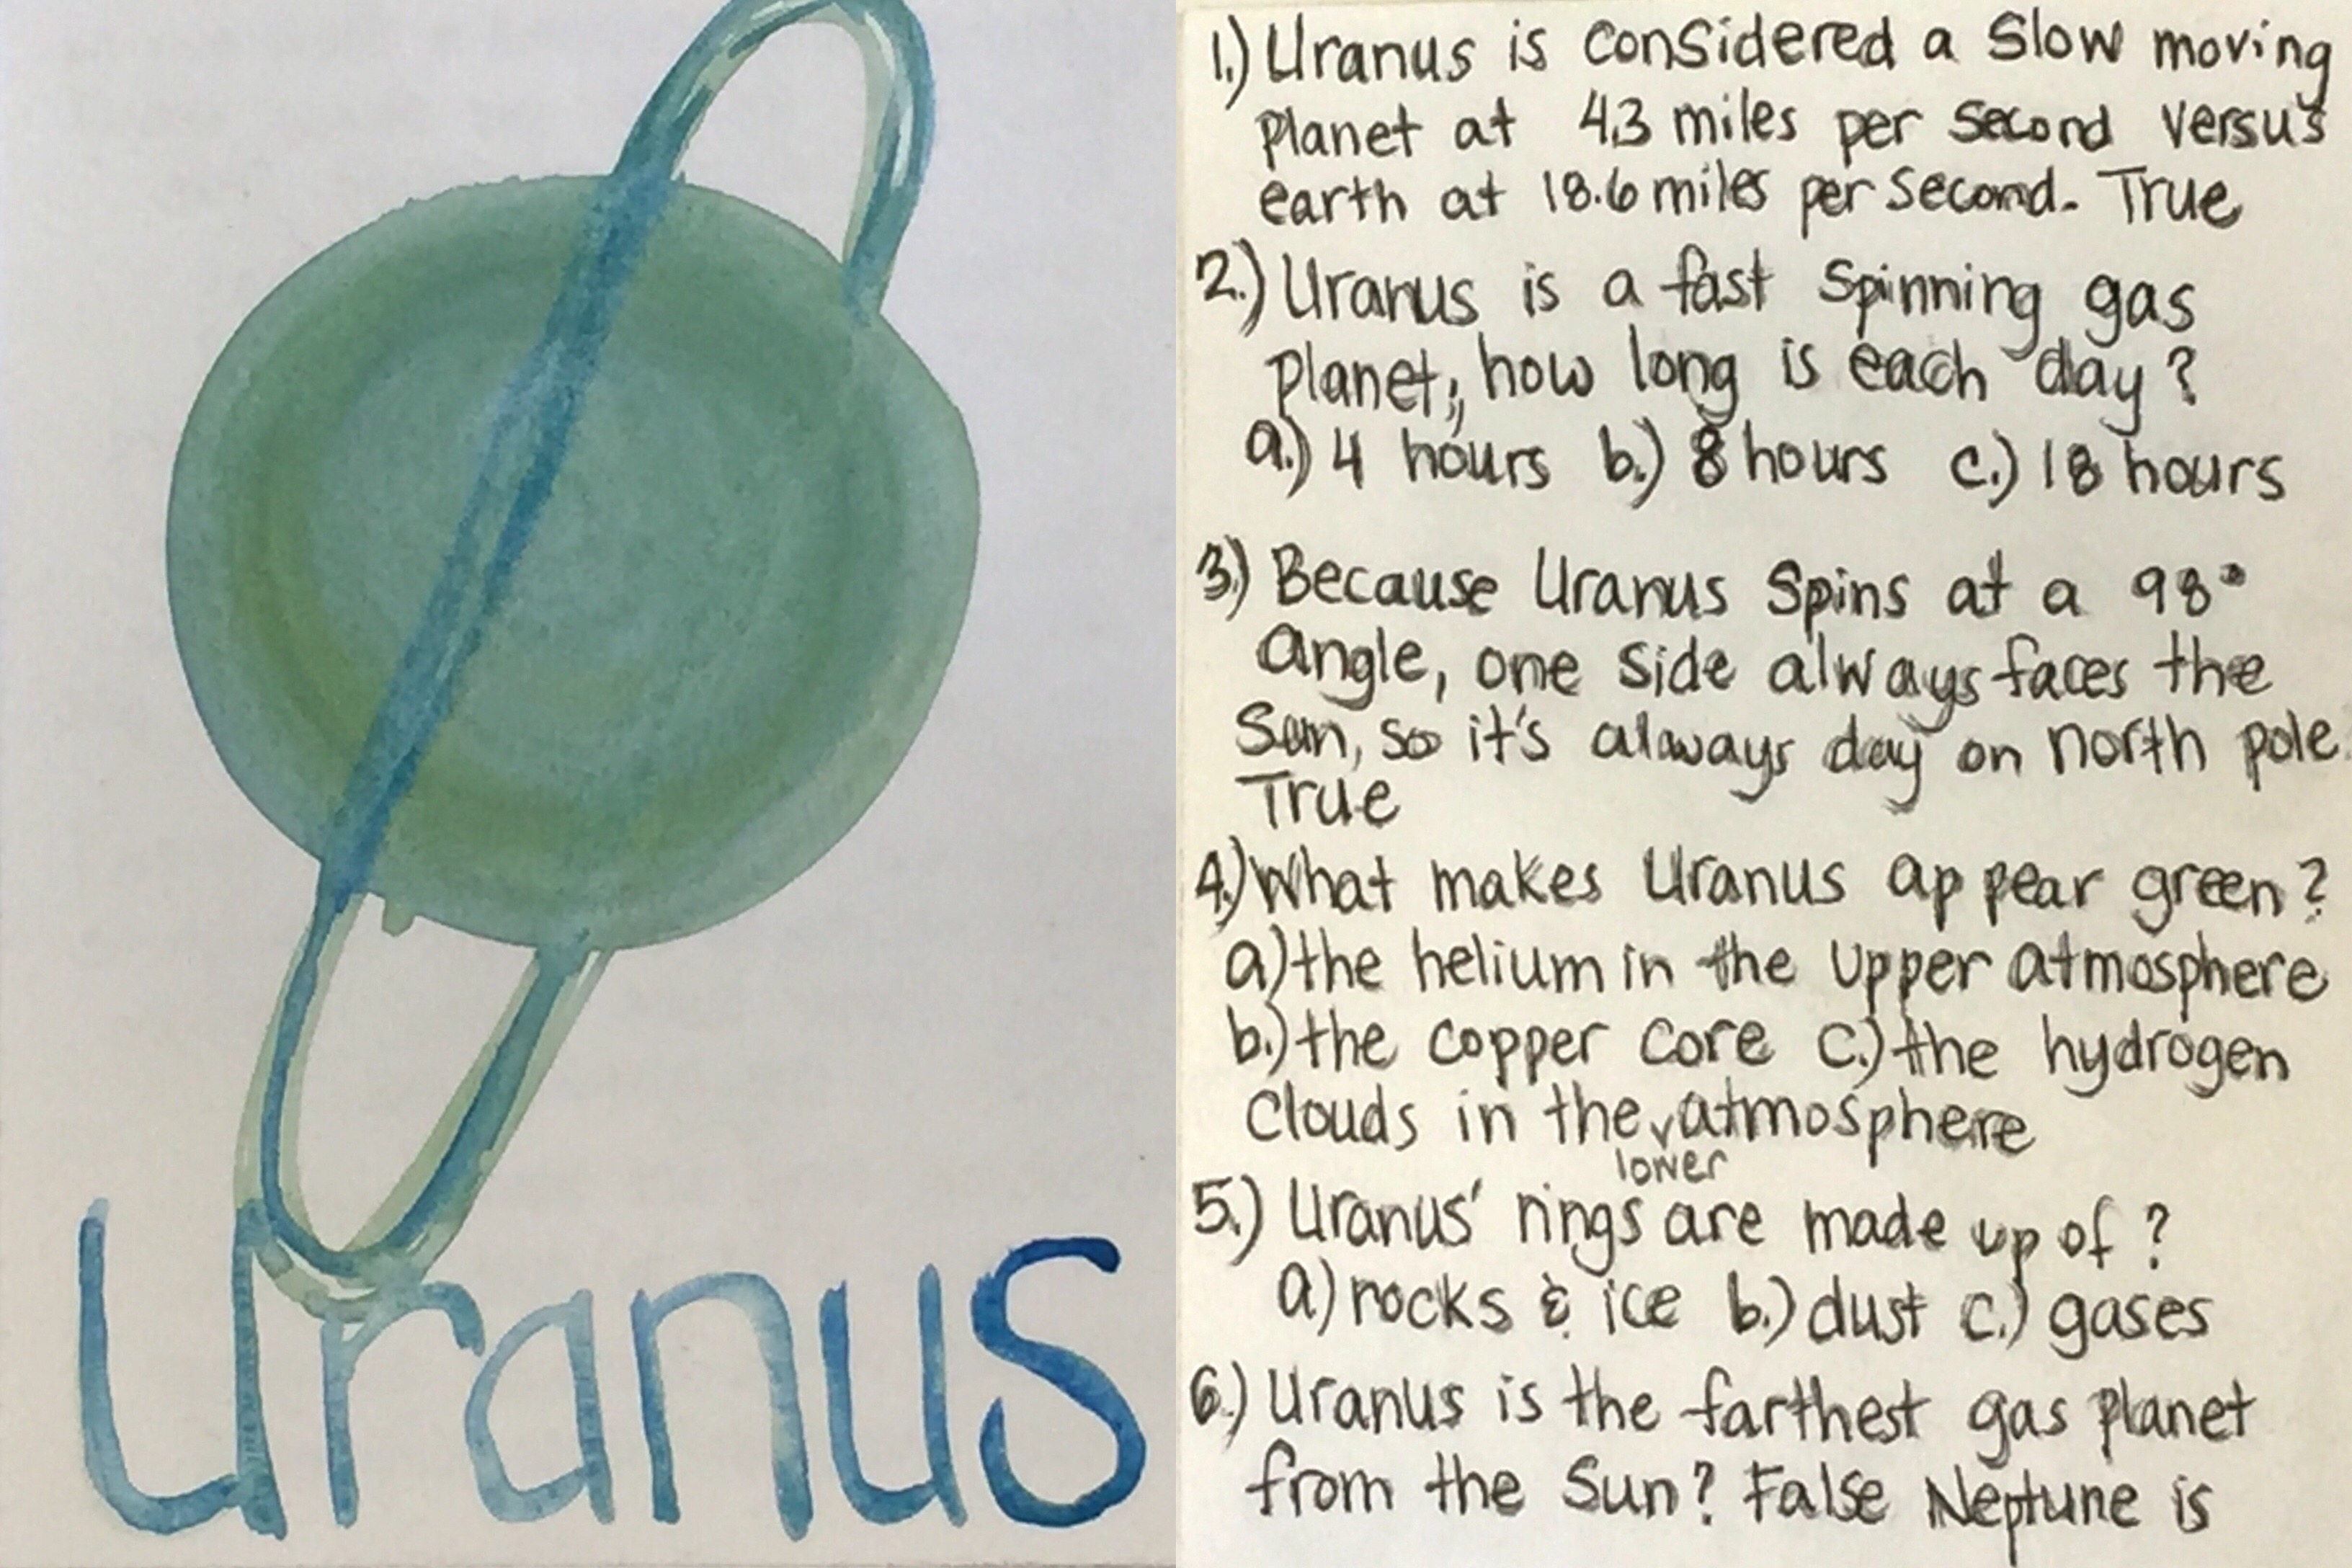 Uranus
1.) Uranus is considered a slow moving
planet at 4.3 miles per second versus
earth at 18.6 miles per second. True
2.) Uranus is a fast spinning gas
planet, how long is each day?
a.) 4 hours b.) 8 hours c.) 18 hours
3.) Because Uranus spins at a 98°
angle, one side always faces the
Sun, so it's always day on north pole.
True
4.) What makes Uranus appear green?
a) the helium in the upper atmosphere
b.) the copper core c.) the hydrogen
clouds in the atmosphere
lower
5.) Uranus' rings are made up of?
a) rocks & ice b.) dust c.) gases
6.) Uranus is the farthest gas planet
from the Sun? False Neptune is